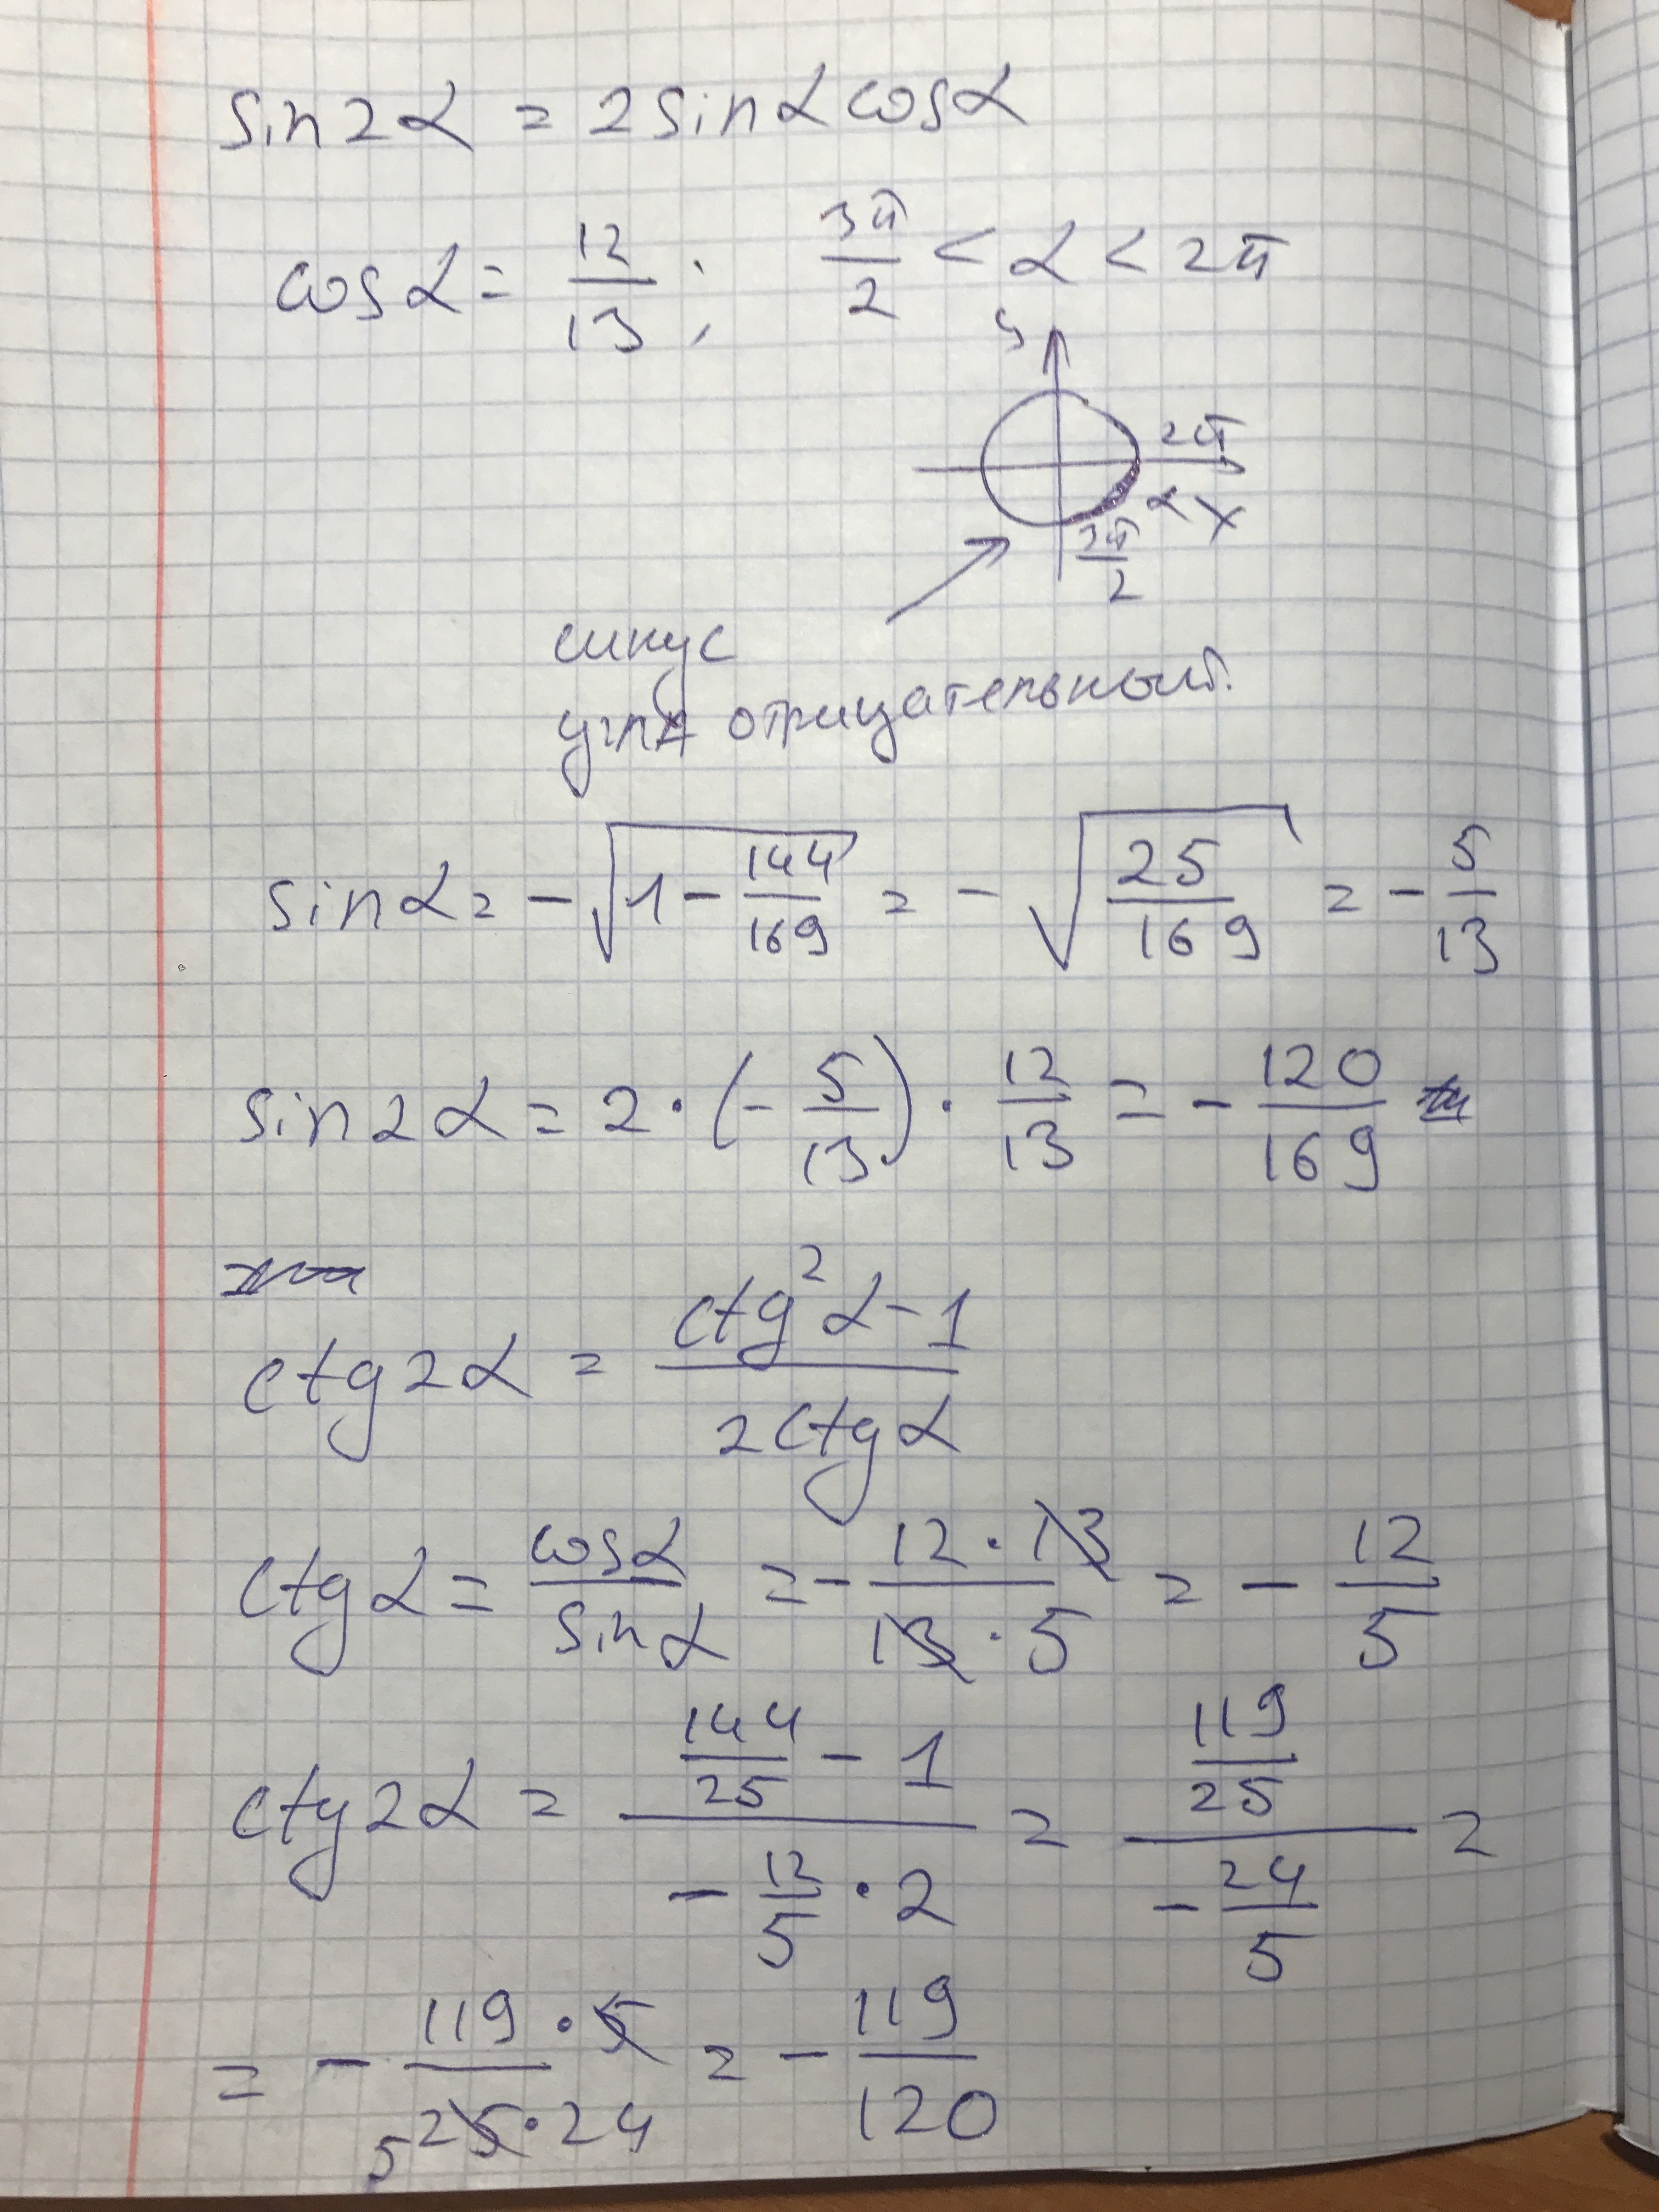 sin2α = 2sinα cosα
cosα = 12/13 ; 3π/2 < α < 2π
y
2π
α x
3π/2
синус
угла отрицательный.
sinα = -√(1 - 144/169) = -√(25/169) = -5/13
sin2α = 2 · (-5/13) · 12/13 = -120/169
ctg2α = (ctg²α - 1)/(2ctgα)
ctgα = cosα/sinα = -(12 · 13)/(13 · 5) = -12/5
ctg2α = (144/25 - 1)/(-12/5 · 2) = (119/25)/(-24/5) =
= -(119 · 5)/(5 25 · 24) = -119/120